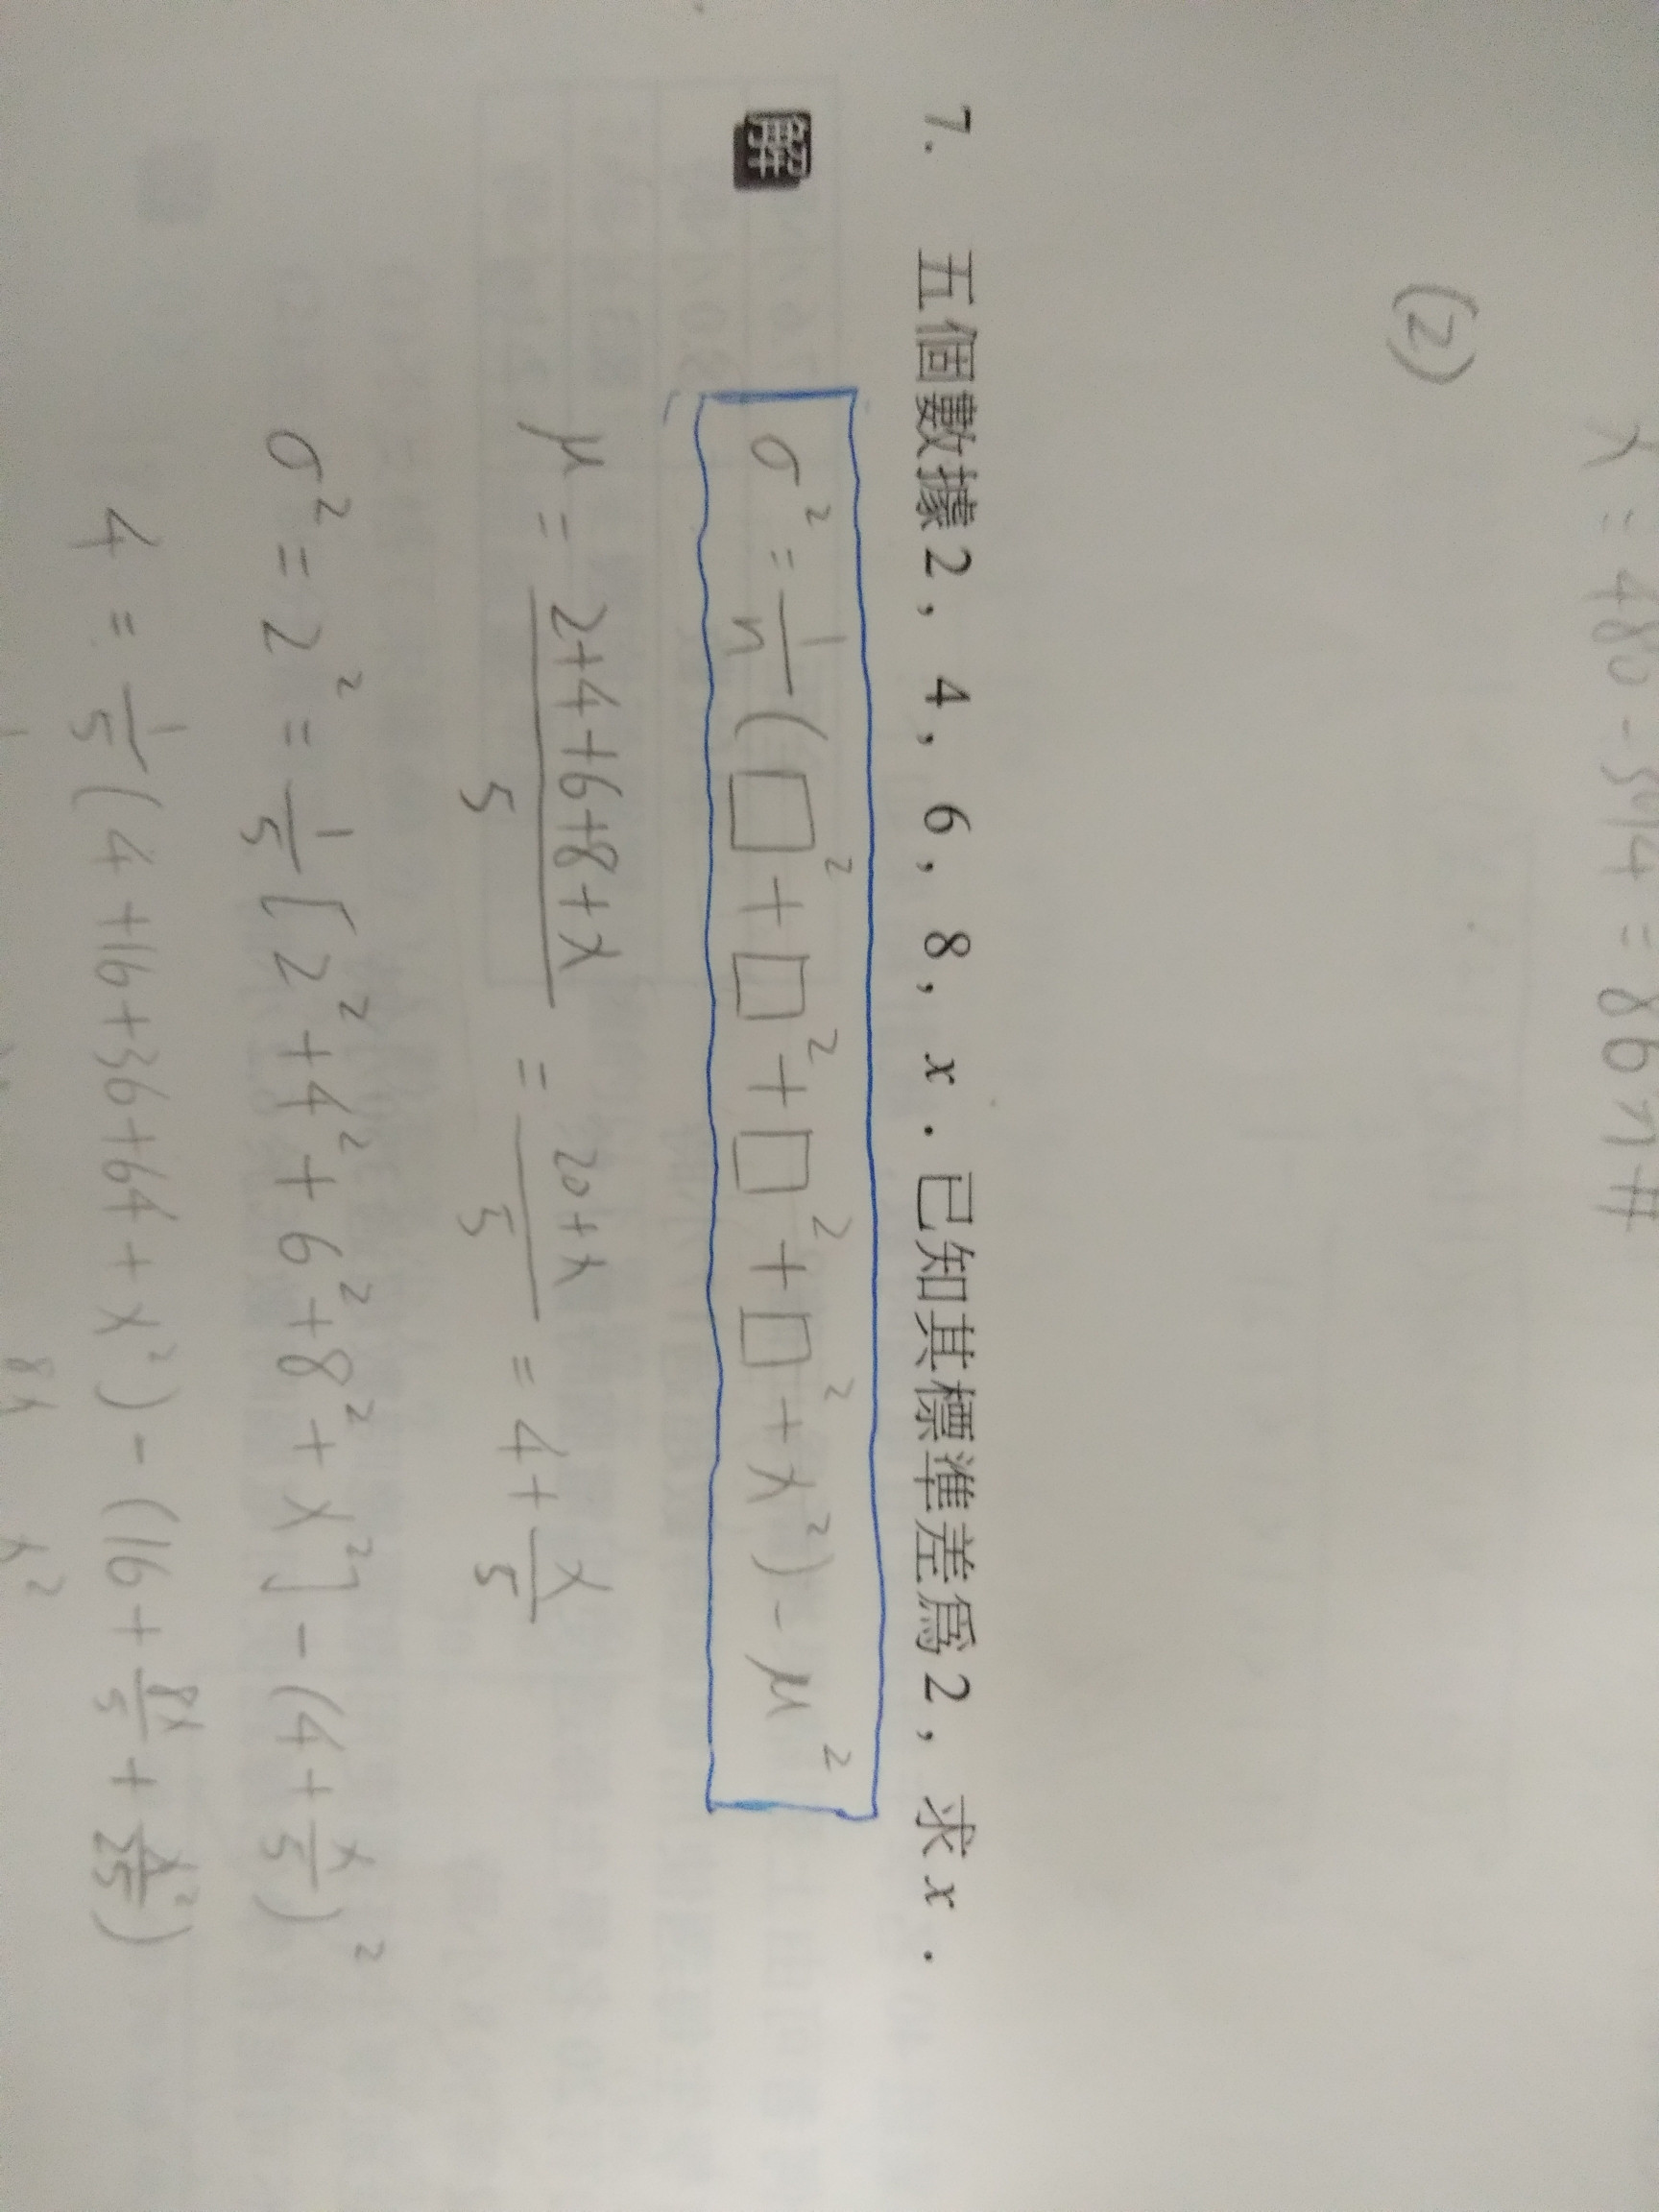 x = 480 - 394 = 86 分 #
(2)
7. 五個數據2，4，6，8，x．已知其標準差為2，求x．
解
σ² = 1/n (□² + □² + □² + □² + x²) - μ²
μ = (2+4+6+8+x)/5 = (20+x)/5 = 4 + x/5
σ² = 2² = 1/5 [2² + 4² + 6² + 8² + x²] - (4 + x/5)²
4 = 1/5 (4 + 16 + 36 + 64 + x²) - (16 + 8x/5 + x²/25)
8x x²